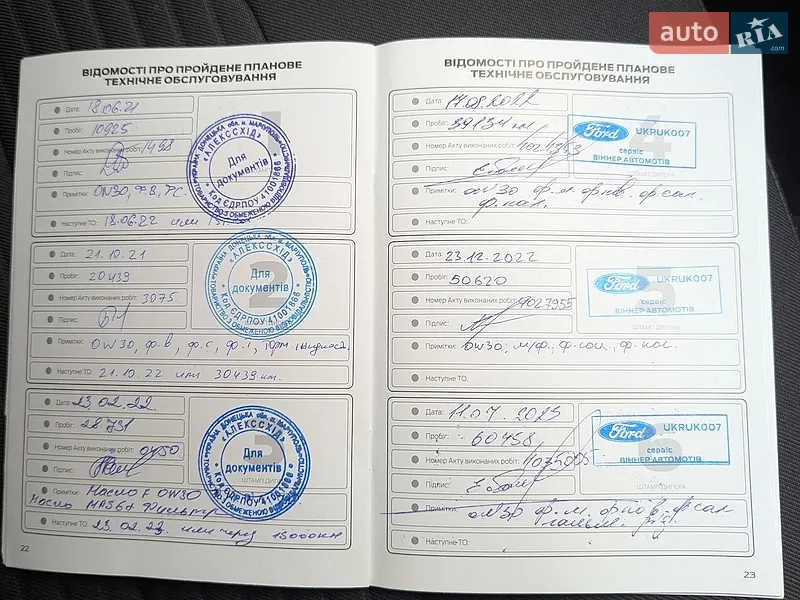 auto RIA .com
ВІДОМОСТІ ПРО ПРОЙДЕНЕ ПЛАНОВЕ
ТЕХНІЧНЕ ОБСЛУГОВУВАННЯ
Дата: 18.06.21
Пробіг: 10925
Номер Акту виконаних робіт: 1498
Підпис:
Примітки: OW30, ф.в,
Наступне ТО: 18.06.22 или
УКРАЇНА ДОНЕЦЬКА обл. м. МАРІУПОЛЬ
«АЛЕКССХІД»
Для
документів
Код ЄДРПОУ 41001866
ТОВАРИСТВО З ОБМЕЖЕНОЮ ВІДПОВІДАЛЬНІСТЮ
Дата: 21.10.21
Пробіг: 20439
Номер Акту виконаних робіт: 3075
Підпис:
Примітки: OW30, ф.в, ф.с, ф.
Наступне ТО: 21.10.22 или 30439 км.
2
УКРАЇНА ДОНЕЦЬКА обл. м. МАРІУПОЛЬ
«АЛЕКССХІД»
Для
документів
Код ЄДРПОУ 41001866
ТОВАРИСТВО З ОБМЕЖЕНОЮ ВІДПОВІДАЛЬНІСТЮ
Дата: 23.02.22
Пробіг: 28731
Номер Акту виконаних робіт: 0450
Підпис:
ШТАМП ДИЛЕРА
Примітки: Масло F OW30
Масло
Наступне ТО: 23.02.23 или через 15000км
УКРАЇНА ДОНЕЦЬКА обл. м. МАРІУПОЛЬ
«АЛЕКССХІД»
Для
документів
Код ЄДРПОУ 41001866
22
ВІДОМОСТІ ПРО ПРОЙДЕНЕ ПЛАНОВЕ
ТЕХНІЧНЕ ОБСЛУГОВУВАННЯ
Дата: 17.08.2022
Пробіг: 39134 км
Номер Акту виконаних робіт:
Підпис:
Примітки: OW30 ф.м. ф.пов. ф.сал.
ф.пал.
Наступне ТО:
4
Ford UKRUK007
сервіс
ВІННЕР АВТОМОТІВ
ШТАМП ДИЛЕРА
Дата: 23.12.2022
Пробіг: 50620
Номер Акту виконаних робіт: 4027955
Підпис:
Примітки: OW30; м/ф.,
Наступне ТО:
5
Ford UKRUK007
сервіс
ВІННЕР АВТОМОТІВ
ШТАМП ДИЛЕРА
Дата: 11.07.2025
Пробіг: 60458
Номер Акту виконаних робіт:
Підпис:
Примітки: OW30 ф.м. ф.пов. ф.сал
Наступне ТО:
6
Ford UKRUK007
сервіс
ВІННЕР АВТОМОТІВ
ШТАМП ДИЛЕРА
23